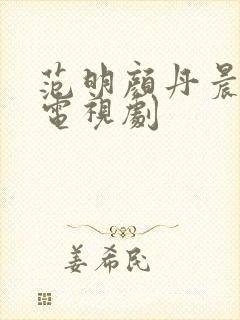 范明顏丹晨
電視劇
姜希民